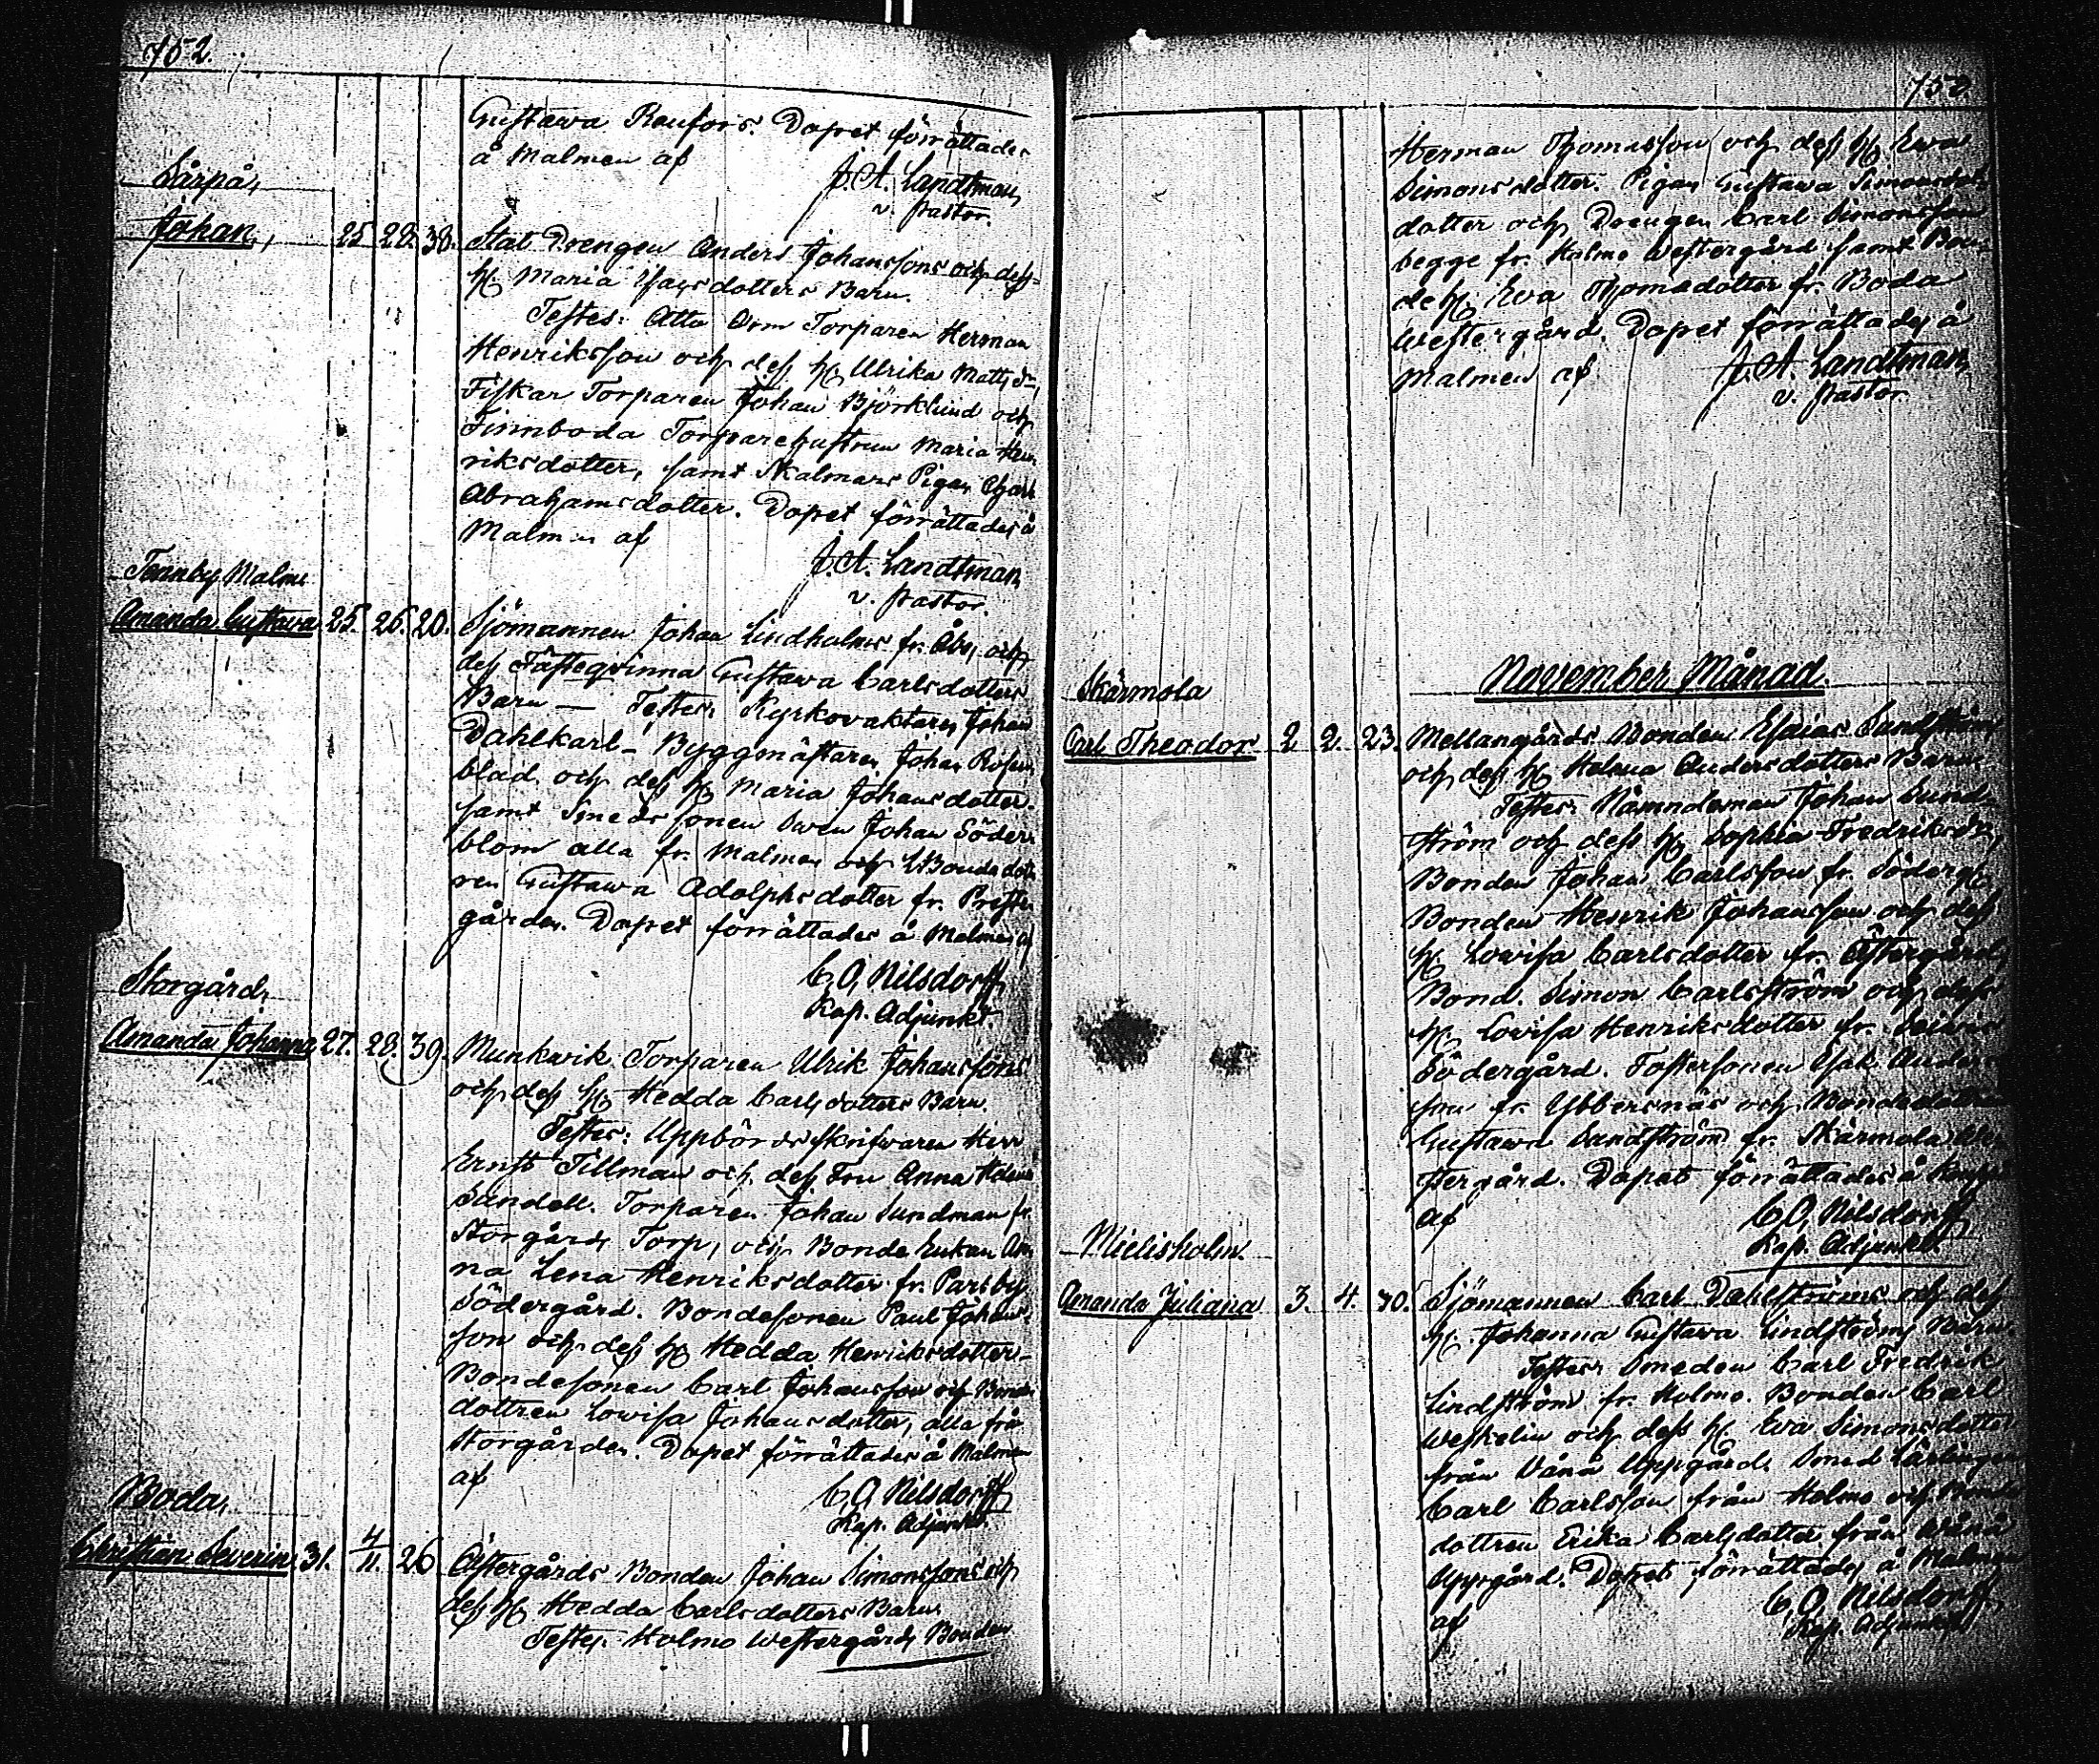 752.
Gustawa Raufors. Dopet förrättades
å Malmen af
J. A. Landtman,
v. pastor.
Lårpå,
Johan, 25. 28. 38. Stat Drengen Anders Johanssons och dess
h. Maria Isacsdotters Barn.
Testes: Atto Orm Torparen Herman
Henriksson och dess h. Ulrika Mattsd.
Fiskar Torparen Johan Björklund och
Finnboda Torparehustrun Maria Hen
riksdotter, samt Skalmars Pigan
Abrahamsdotter. Dopet förrättades å
Malmen af
J. A. Landtman,
v. pastor.
Tennby Malme
Amanda Gustawa 25. 26. 20. Sjömannen Johan Lindholms fr. Åbo, och
dess Fästeqvinna Gustawa Carlsdotters
Barn — Testes: Kyrkovaktaren Johan
Dahlkarl – Byggmästaren Johan Rosen
blad och dess h. Maria Johansdotter.
samt Smeds sonen Swen Johan Söder
blom alla fr. Malmen och Bonde dott
ren Gustawa Adolphsdotter fr. Preste
gården. Dopet förrättades å Malmen af
C. A. Nilsdorff,
Kap. Adjunkt.
Storgård,
Amanda Johanna 27. 28. 39. Munkwik Torparen Ulrik Johanssons
och dess h. Hedda Carlsdotters Barn.
Testes: Uppbördsskrifwaren Herr
Ernst Tillman och dess Fru Anna Helena
Sandell. Torparen Johan Sundman fr.
Storgårds Torp, och Bonde Enkan An
na Lena Henriksdotter fr. Parsby
Södergård. Bondesonen Paul Johans
son och dess h. Hedda Henriksdotter –
Bondesonen Carl Johansson och Bonde
dottren Lowisa Johansdotter, alla från
Storgården. Dopet förrättades å Malmen
af
C. A. Nilsdorff,
Kap. Adjunkt.
Boda,
Christian Severin 31. 4/11. 26 Östergårds Bonden Johan Simonssons och
dess h. Hedda Carlsdotters Barn.
Testes: Holmo Westergårds Bonden
753
Herman Thomasson och dess h. Ewa
Simonsdotter. Pigan Gustawa Simonsdot
dotter och Drengen Carl Simonsson
begge fr. Holmo Westergård samt Bon
de h. Ewa Thomasdotter fr. Boda
Westergård. Dopet förrättades å
Malmen af
J. A. Landtman,
v. pastor
November Månad.
Skärmola
Carl Theodor 2 2. 23. Mellangårds Bonden Esaias Sandström
och dess h. Helena Andersdotters Barn
Testes: Nämndeman Johan Sund
ström och dess h. Sophia Fredriksdr,
Bonden Johan Carlsson fr. Söderg.
Bonden Henrik Johansson och dess
h. Lowisa Carlsdotter fr. Östergård,
Bond. Simon Carlström och dess
h. Lowisa Henriksdotter fr.
Södergård. Fostersonen Esak Anders
son fr. Ybbersnäs och Bondedottren
Gustawa Sandström fr. Skärmola We
stergård. Dopet förrättades å
af
C. A. Nilsdorff
Kap. Adjunkt.
Mielisholm.
Amanda Juliana 3. 4. 30. Sjömannen Carl Dahlströms och dess
h. Johanna Gustawa Lindströms Barn.
Testes: Smeden Carl Fredrik
Lindström fr. Holmo. Bonden Carl
Weskelin och dess h. Ewa Simonsdotter
från Vånå Uppgård. Smed Lärlingen
Carl Carlsson från Holmo och Bonde
dottren Erika Carlsdotter från Wånå
Uppgård. Dopet förrättades å Malmen
af
C. A. Nilsdorff,
Kap. Adjunkt.